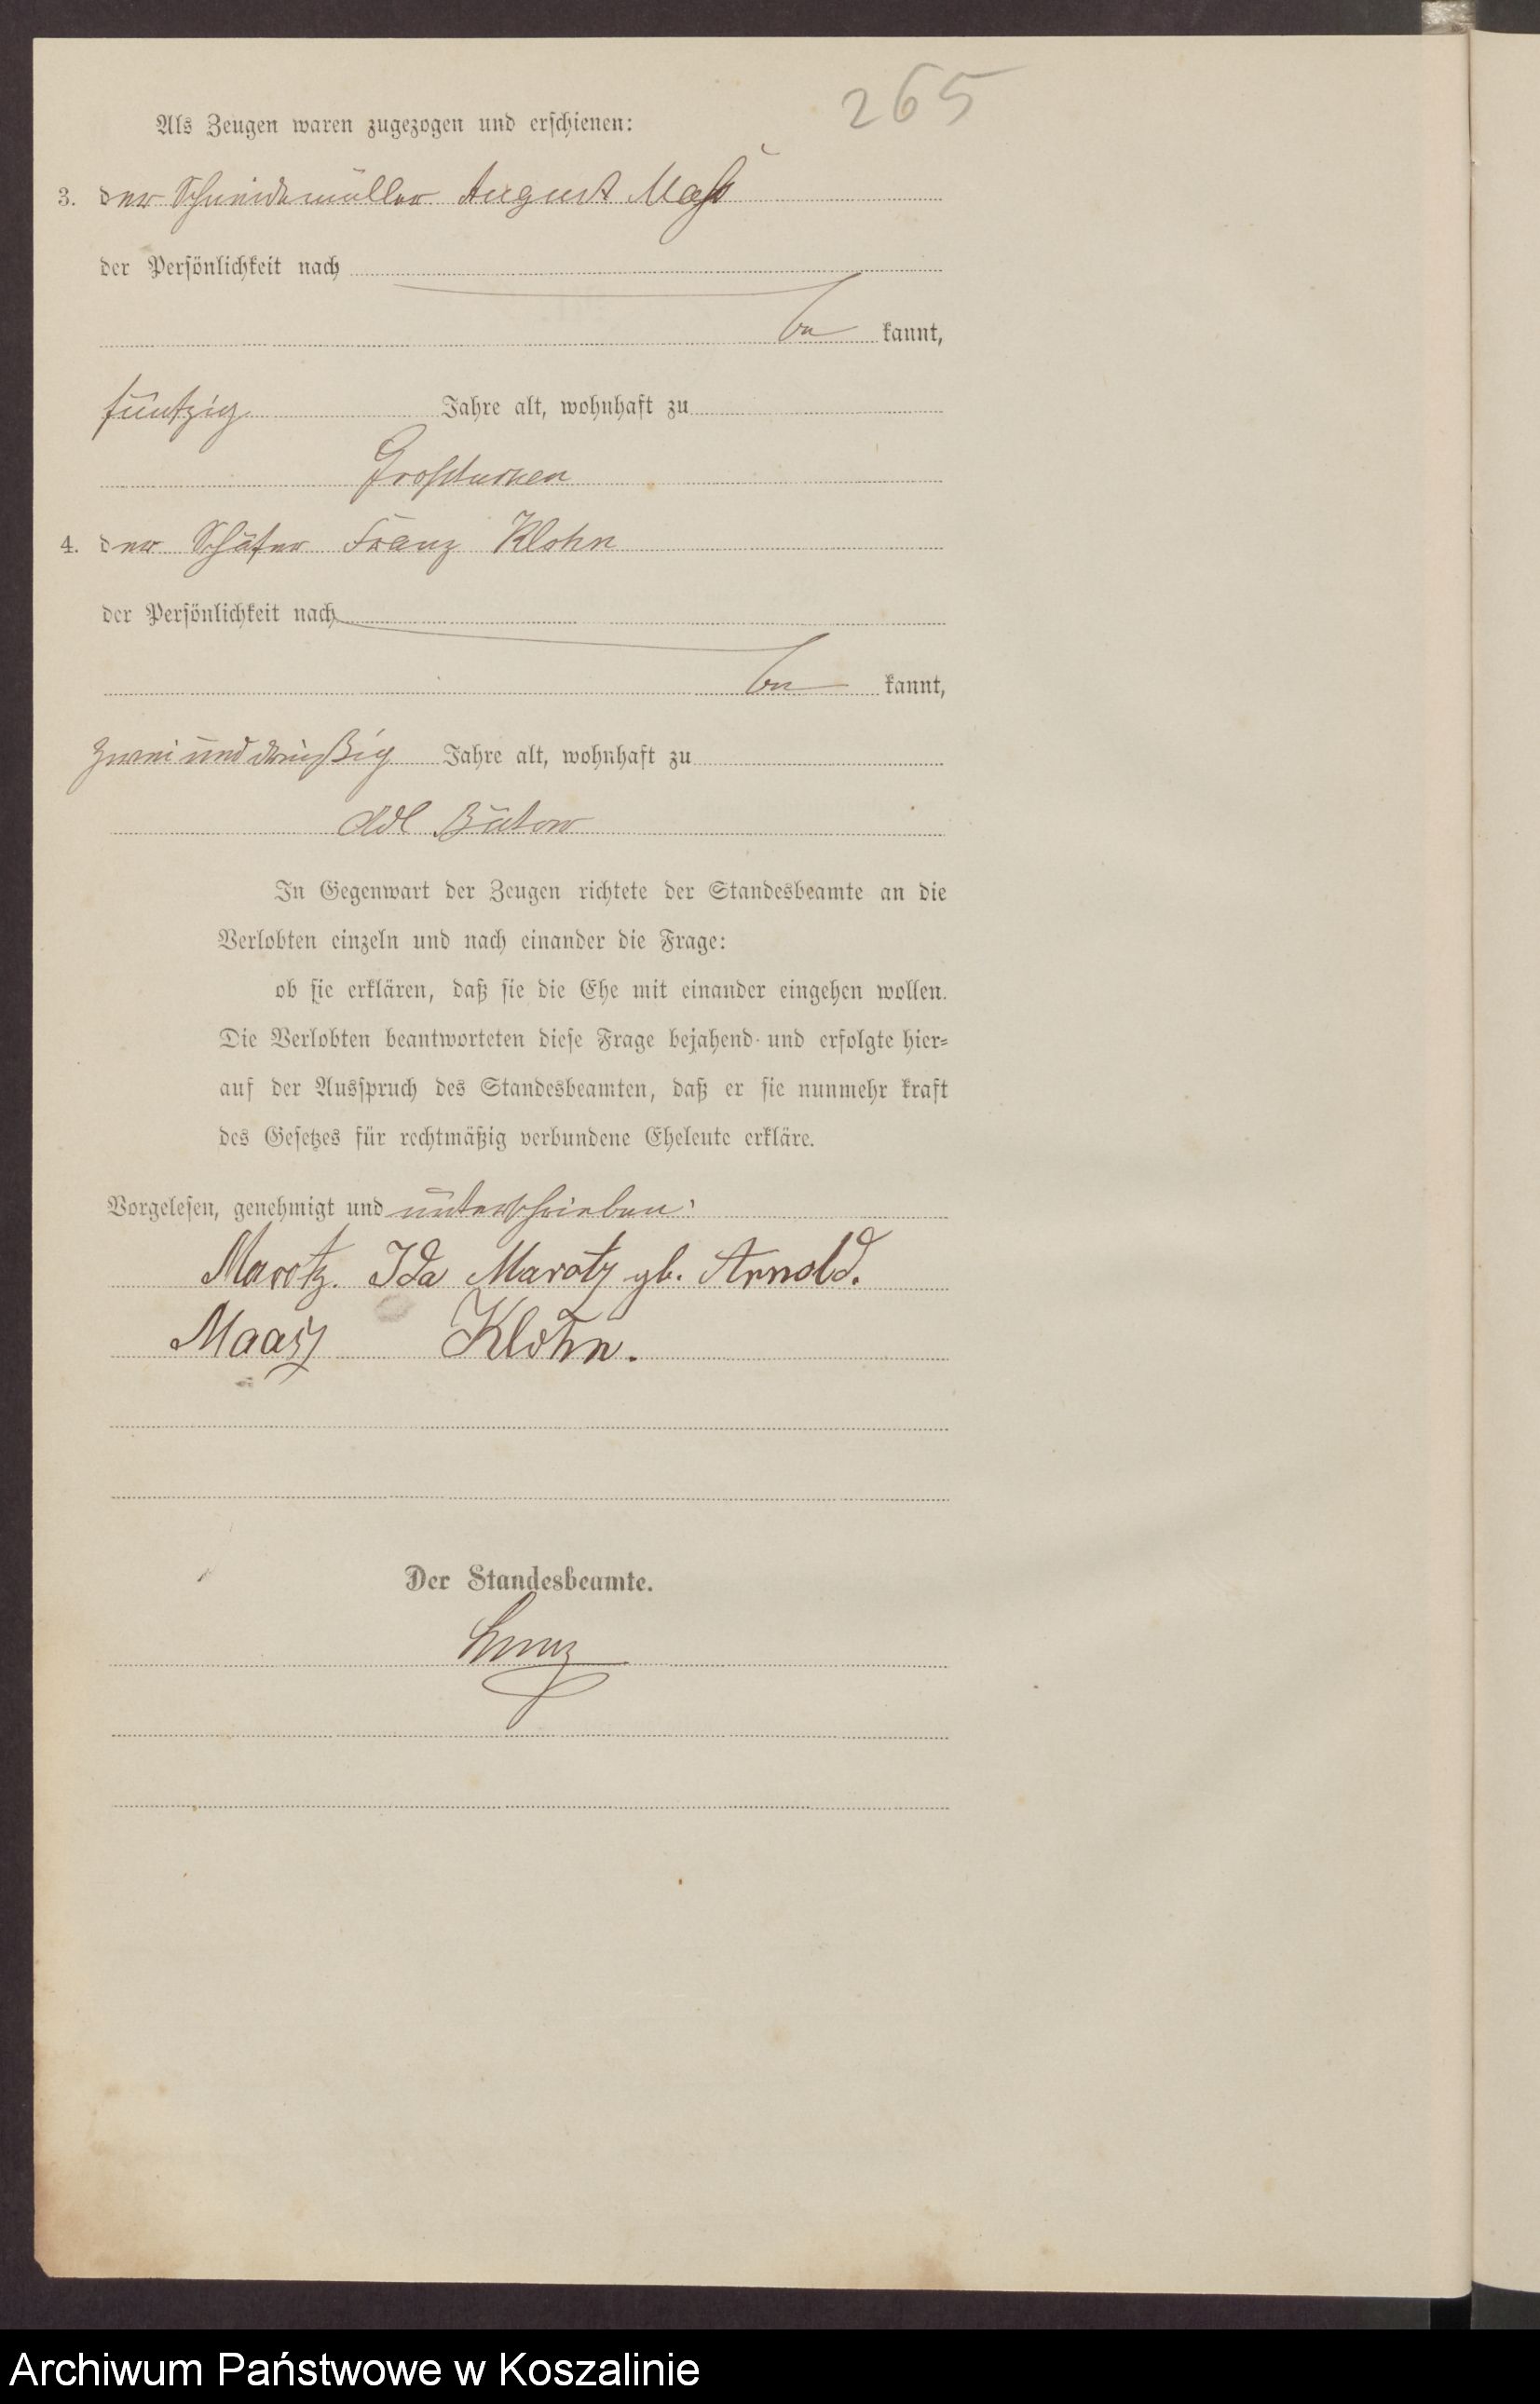 265
Als Zeugen waren zugezogen und erschienen:
3. der Schneidemüller August Maß
der Persönlichkeit nach
be kannt,
fünfzig Jahre alt, wohnhaft zu
Großtuchen
4. der Schäfer Franz Klohn
der Persönlichkeit nach
be kannt,
zweiunddreißig Jahre alt, wohnhaft zu
Adl Bütow
In Gegenwart der Zeugen richtete der Standesbeamte an die
Verlobten einzeln und nach einander die Frage:
ob sie erklären, daß sie die Ehe mit einander eingehen wollen.
Die Verlobten beantworteten diese Frage bejahend und erfolgte hier-
auf der Ausspruch des Standesbeamten, daß er sie nunmehr kraft
des Gesetzes für rechtmäßig verbundene Eheleute erkläre.
Vorgelesen, genehmigt und unterschrieben:
Marotz. Ida Marotz gb. Arnold.
Maaß Klohn.
Der Standesbeamte.
Archiwum Państwowe w Koszalinie